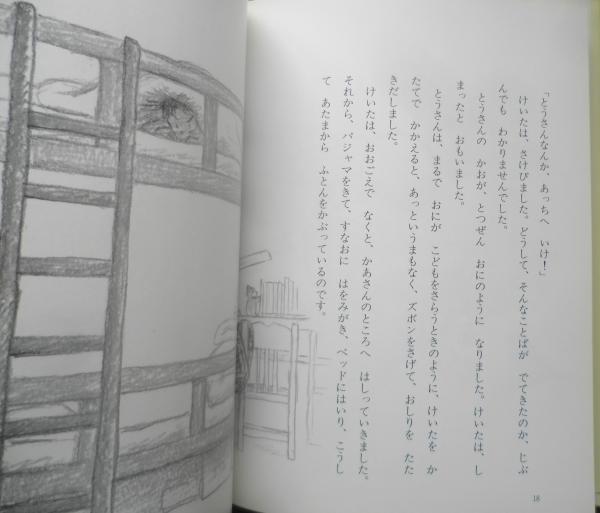 「とうさんなんか、あっちへ　いけ！」
けいたは、さけびました。どうして、そんなことばが　でてきたのか、じぶ
んでも　わかりませんでした。
とうさんの　かおが、とつぜん　おにのように　なりました。けいたは、し
まったと　おもいました。
とうさんは、まるで　おにが　こどもをさらうときのように、けいたを　か
たてで　かかえると、あっというまもなく、ズボンをさげて、おしりを　たた
きだしました。
けいたは、おおごえで　なくと、かあさんのところへ　はしっていきました。
それから、パジャマをきて、すなおに　はをみがき、ベッドにはいり、こうし
て　あたまから　ふとんをかぶっているのです。
18